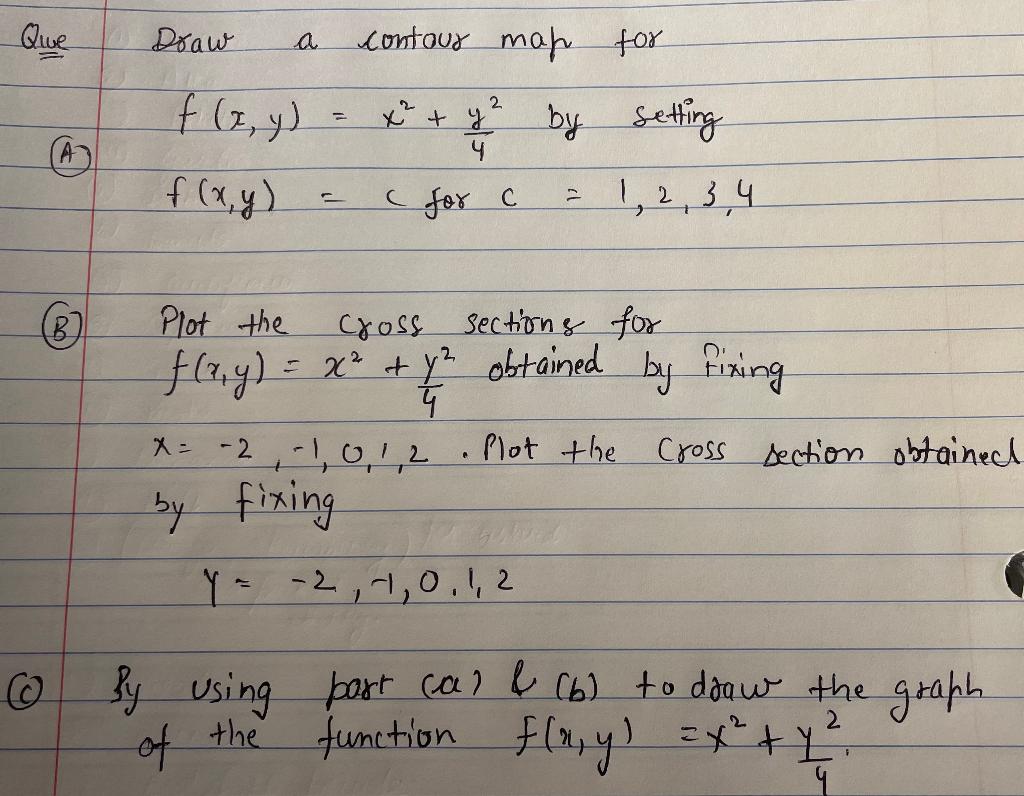 Que Draw a contour map for
f(x, y) = x² + y²/4 by setting
(A)
f(x,y) = c for c = 1, 2, 3, 4
(B) Plot the cross sections for
f(x,y) = x² + y²/4 obtained by fixing
x = -2, -1, 0, 1, 2. Plot the cross section obtained
by fixing
Y = -2, -1, 0, 1, 2
(C) By using part (a) & (b) to draw the graph
of the function f(x, y) = x² + y²/4.